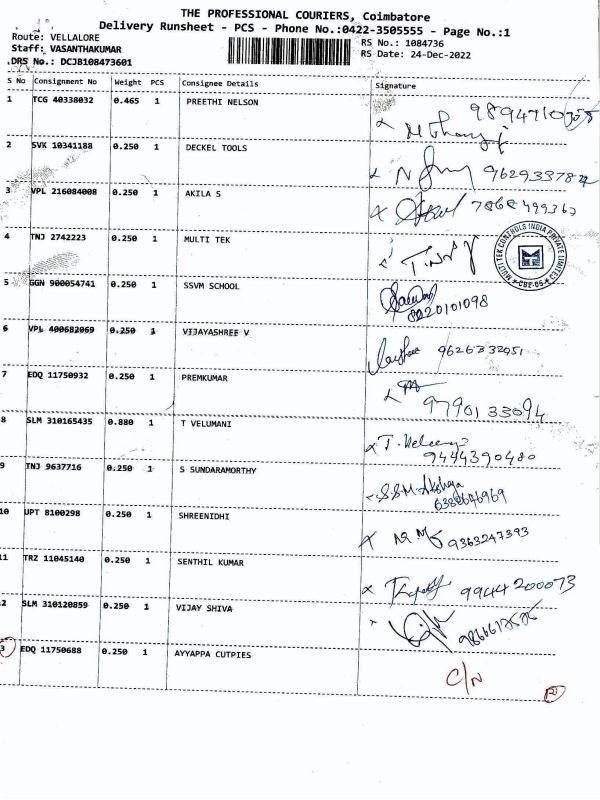 THE PROFESSIONAL COURIERS, Coimbatore
Delivery Runsheet - PCS - Phone No.:0422-3505555 - Page No.:1
Route: VELLALORE
RS No.: 1084736
Staff: VASANTHAKUMAR
RS Date: 24-Dec-2022
DRS No.: DCJB108473601
S No Consignment No Weight PCS Consignee Details Signature
1 TCG 40338032 0.465 1 PREETHI NELSON
2 SVK 10341188 0.250 1 DECKEL TOOLS
3 VPL 216084008 0.250 1 AKILA S 7868499363
4 TNJ 2742223 0.250 1 MULTI TEK
MULTI TEK CONTROLS INDIA PRIVATE LIMITED CBE-05
5 GGN 900054741 0.250 1 SSVM SCHOOL
8220101098
6 VPL 400682069 0.250 1 VIJAYASHREE V
7 EDQ 11750932 0.250 1 PREMKUMAR
9790133094
8 SLM 310165435 0.880 1 T VELUMANI
9444390480
9 TNJ 9637716 0.250 1 S SUNDARAMORTHY
10 UPT 8100298 0.250 1 SHREENIDHI
9363247393
11 TRZ 11045140 0.250 1 SENTHIL KUMAR
9944200073
2 SLM 310120859 0.250 1 VIJAY SHIVA
3 EDQ 11750688 0.250 1 AYYAPPA CUTPIES
C/N